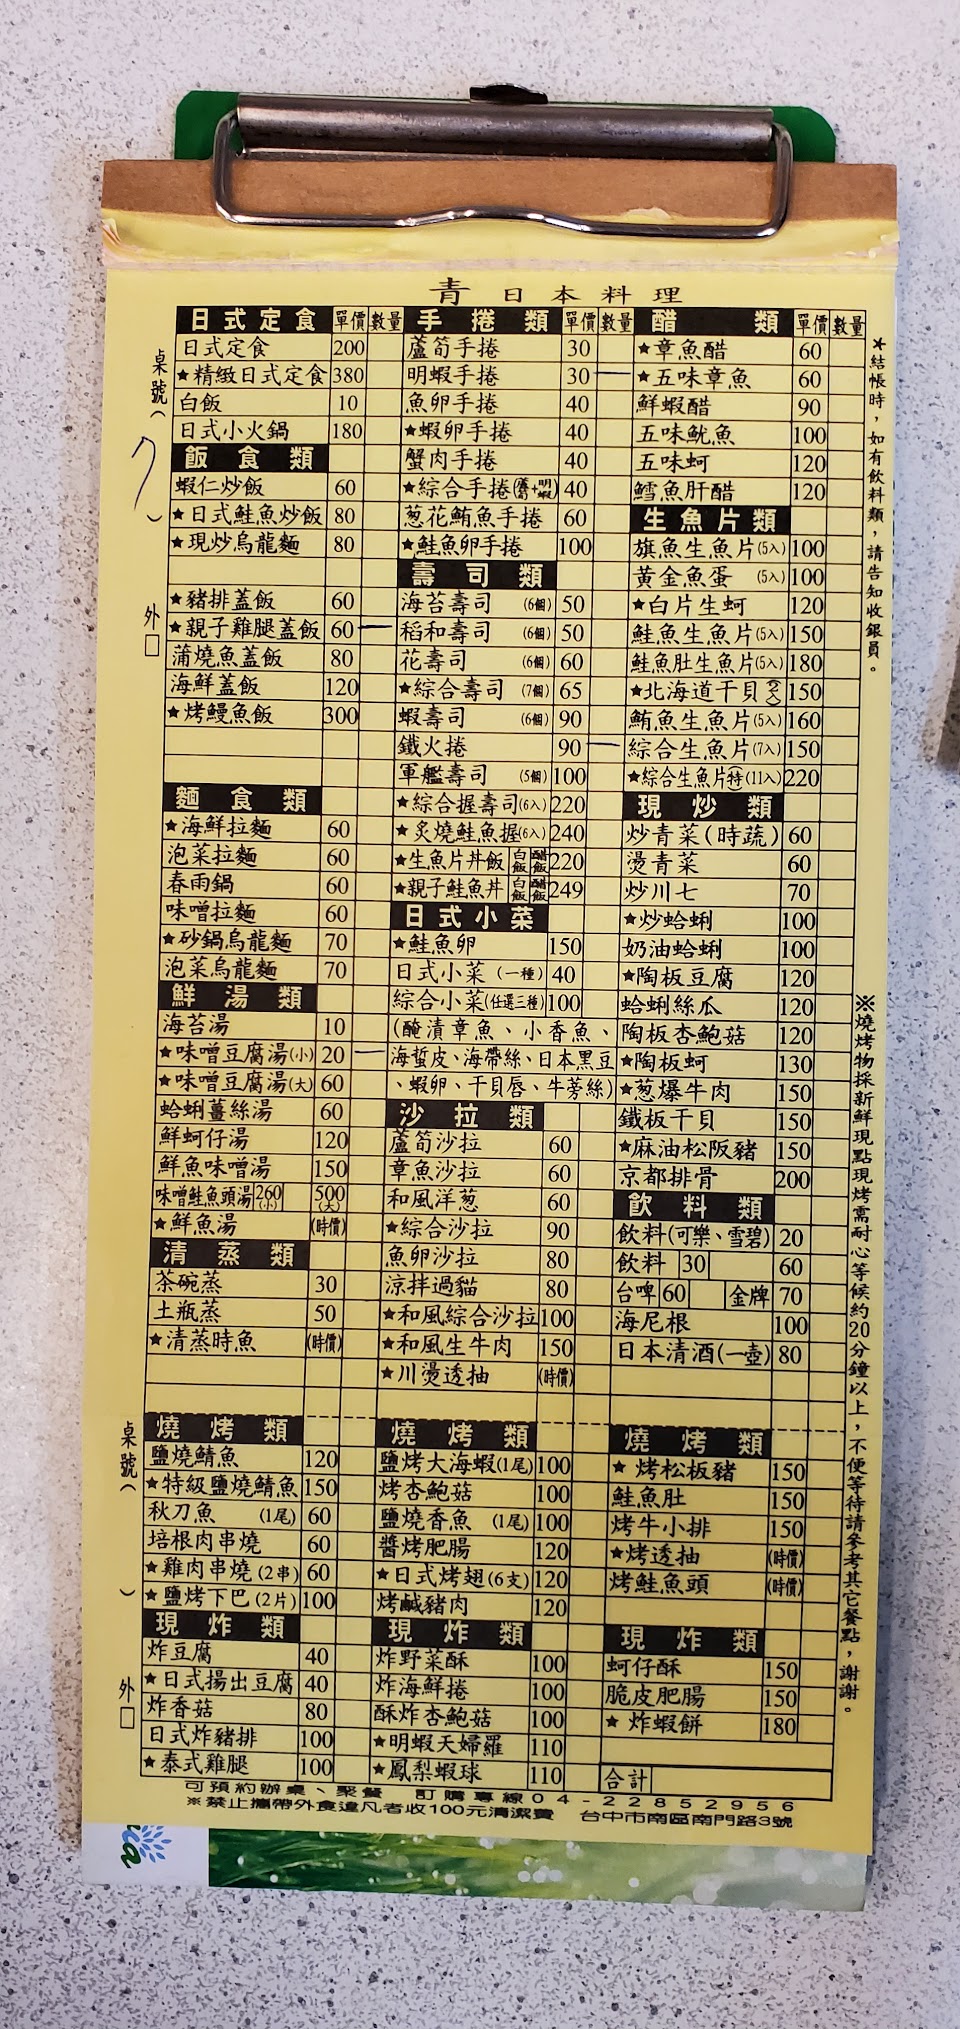 青 日本料理
日式定食 單價 數量
日式定食 200
★精緻日式定食 380
白飯 10
日式小火鍋 180
飯食類
蝦仁炒飯 60
★日式鮭魚炒飯 80
★現炒烏龍麵 80
★豬排蓋飯 60
★親子雞腿蓋飯 60 一
蒲燒魚蓋飯 80
海鮮蓋飯 120
★烤鰻魚飯 300
麵食類
★海鮮拉麵 60
泡菜拉麵 60
春雨鍋 60
味噌拉麵 60
★砂鍋烏龍麵 70
泡菜烏龍麵 70
鮮湯類
海苔湯 10
★味噌豆腐湯(小) 20 一
★味噌豆腐湯(大) 60
蛤蜊薑絲湯 60
鮮蚵仔湯 120
鮮魚味噌湯 150
味噌鮭魚頭湯 260(小) 500(大)
★鮮魚湯 (時價)
清蒸類
茶碗蒸 30
土瓶蒸 50
★清蒸時魚 (時價)
手捲類 單價 數量
蘆筍手捲 30
明蝦手捲 30 一
魚卵手捲 40
★蝦卵手捲 40
蟹肉手捲 40
★綜合手捲(蘆筍+明蝦) 40
葱花鮪魚手捲 60
★鮭魚卵手捲 100
壽司類
海苔壽司 (6個) 50
稻和壽司 (6個) 50
花壽司 (6個) 60
★綜合壽司 (7個) 65
蝦壽司 (6個) 90
鐵火捲 90 一
軍艦壽司 (5個) 100
★綜合握壽司(6入) 220
★炙燒鮭魚握(6入) 240
★生魚片丼飯 白飯 醋飯 220
★親子鮭魚丼 白飯 醋飯 249
日式小菜
★鮭魚卵 150
日式小菜 (一種) 40
綜合小菜(任選三種) 100
(醃漬章魚、小香魚、
海蜇皮、海帶絲、日本黑豆
、蝦卵、干貝唇、牛蒡絲)
沙拉類
蘆筍沙拉 60
章魚沙拉 60
和風洋葱 60
★綜合沙拉 90
魚卵沙拉 80
涼拌過貓 80
★和風綜合沙拉 100
★和風生牛肉 150
★川燙透抽 (時價)
醋類 單價 數量
★章魚醋 60
★五味章魚 60
鮮蝦醋 90
五味魷魚 100
五味蚵 120
鱈魚肝醋 120
生魚片類
旗魚生魚片(5入) 100
黃金魚蛋 (5入) 100
★白片生蚵 120
鮭魚生魚片(5入) 150
鮭魚肚生魚片(5入) 180
★北海道干貝 150
鮪魚生魚片(5入) 160
綜合生魚片(7入) 150
★綜合生魚片(特)(11入) 220
現炒類
炒青菜(時蔬) 60
燙青菜 60
炒川七 70
★炒蛤蜊 100
奶油蛤蜊 100
★陶板豆腐 120
蛤蜊絲瓜 120
陶板杏鮑菇 120
★陶板蚵 130
★葱爆牛肉 150
鐵板干貝 150
★麻油松阪豬 150
京都排骨 200
飲料類
飲料(可樂、雪碧) 20
飲料 30 60
台啤 60 金牌 70
海尼根 100
日本清酒(一壺) 80
燒烤類
鹽燒鯖魚 120
★特級鹽燒鯖魚 150
秋刀魚 (1尾) 60
培根肉串燒 60
★雞肉串燒 (2串) 60
★鹽烤下巴 (2片) 100
現炸類
炸豆腐 40
★日式揚出豆腐 40
炸香菇 80
日式炸豬排 100
★泰式雞腿 100
燒烤類
鹽烤大海蝦(1尾) 100
烤杏鮑菇 100
鹽燒香魚 (1尾) 100
醬烤肥腸 120
★日式烤翅(6支) 120
烤鹹豬肉 120
現炸類
炸野菜酥 100
炸海鮮捲 100
酥炸杏鮑菇 100
★明蝦天婦羅 110
★鳳梨蝦球 110
燒烤類
★烤松板豬 150
鮭魚肚 150
烤牛小排 150
★烤透抽 (時價)
烤鮭魚頭 (時價)
現炸類
蚵仔酥 150
脆皮肥腸 150
★炸蝦餅 180
合計
桌號( 7 )
外□
桌號( )
外□
★結帳時，如有飲料類，請告知收銀員。
※燒烤物採新鮮現點現烤需耐心等候約20分鐘以上，不便等待請參考其它餐點，謝謝。
可預約辦桌、聚餐 訂購專線04-22852956
※禁止攜帶外食違凡者收100元清潔費 台中市南區南門路3號